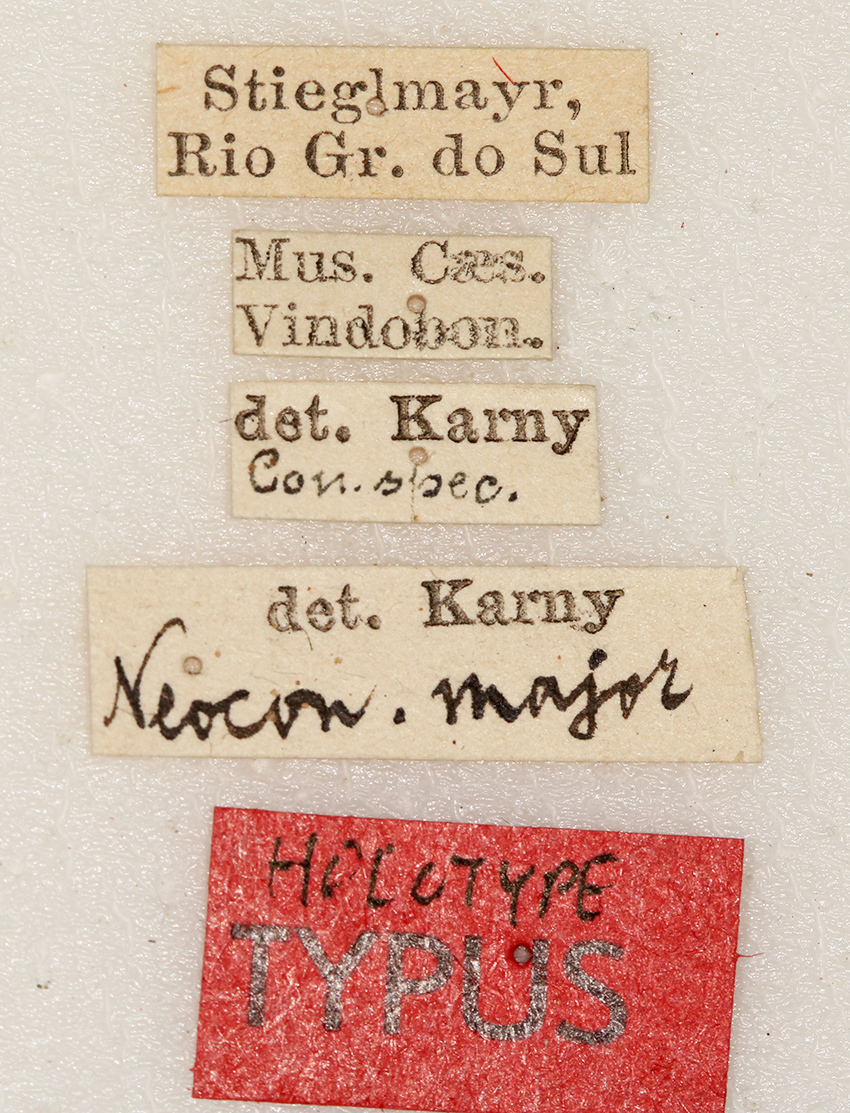 Stieglmayr,
Rio Gr. do Sul
Mus. Cæs.
Vindobon.
det. Karny
Con. spec.
det. Karny
Neocon. major
HOLOTYPE
TYPUS